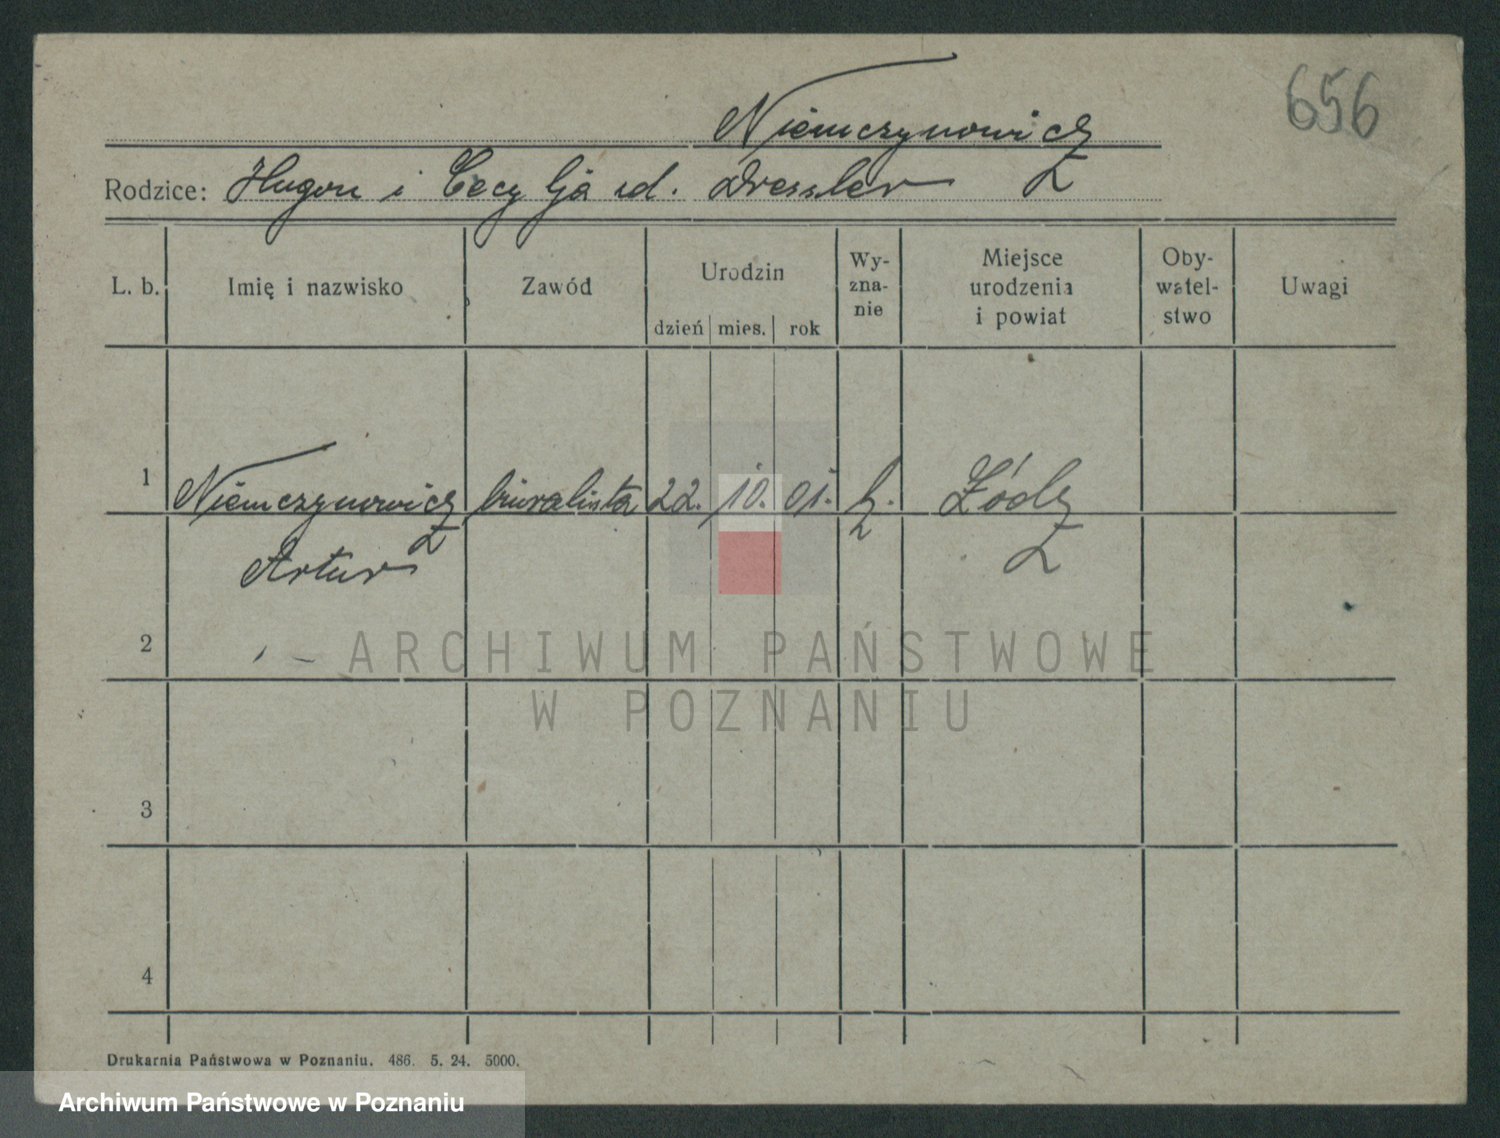 656
Niemczynowicz
Rodzice: Hugon i Cecylja zd. Dressler
L. b. Imię i nazwisko Zawód Urodzin dzień mies. rok Wy-zna-nie Miejsce urodzenia i powiat Oby-watel-stwo Uwagi
1 Niemczynowicz biuralista 22. 10. 01. Łódź
Artur
2
ARCHIWUM PAŃSTWOWE
W POZNANIU
3
4
Drukarnia Państwowa w Poznaniu. 486. 5. 24. 5000.
Archiwum Państwowe w Poznaniu